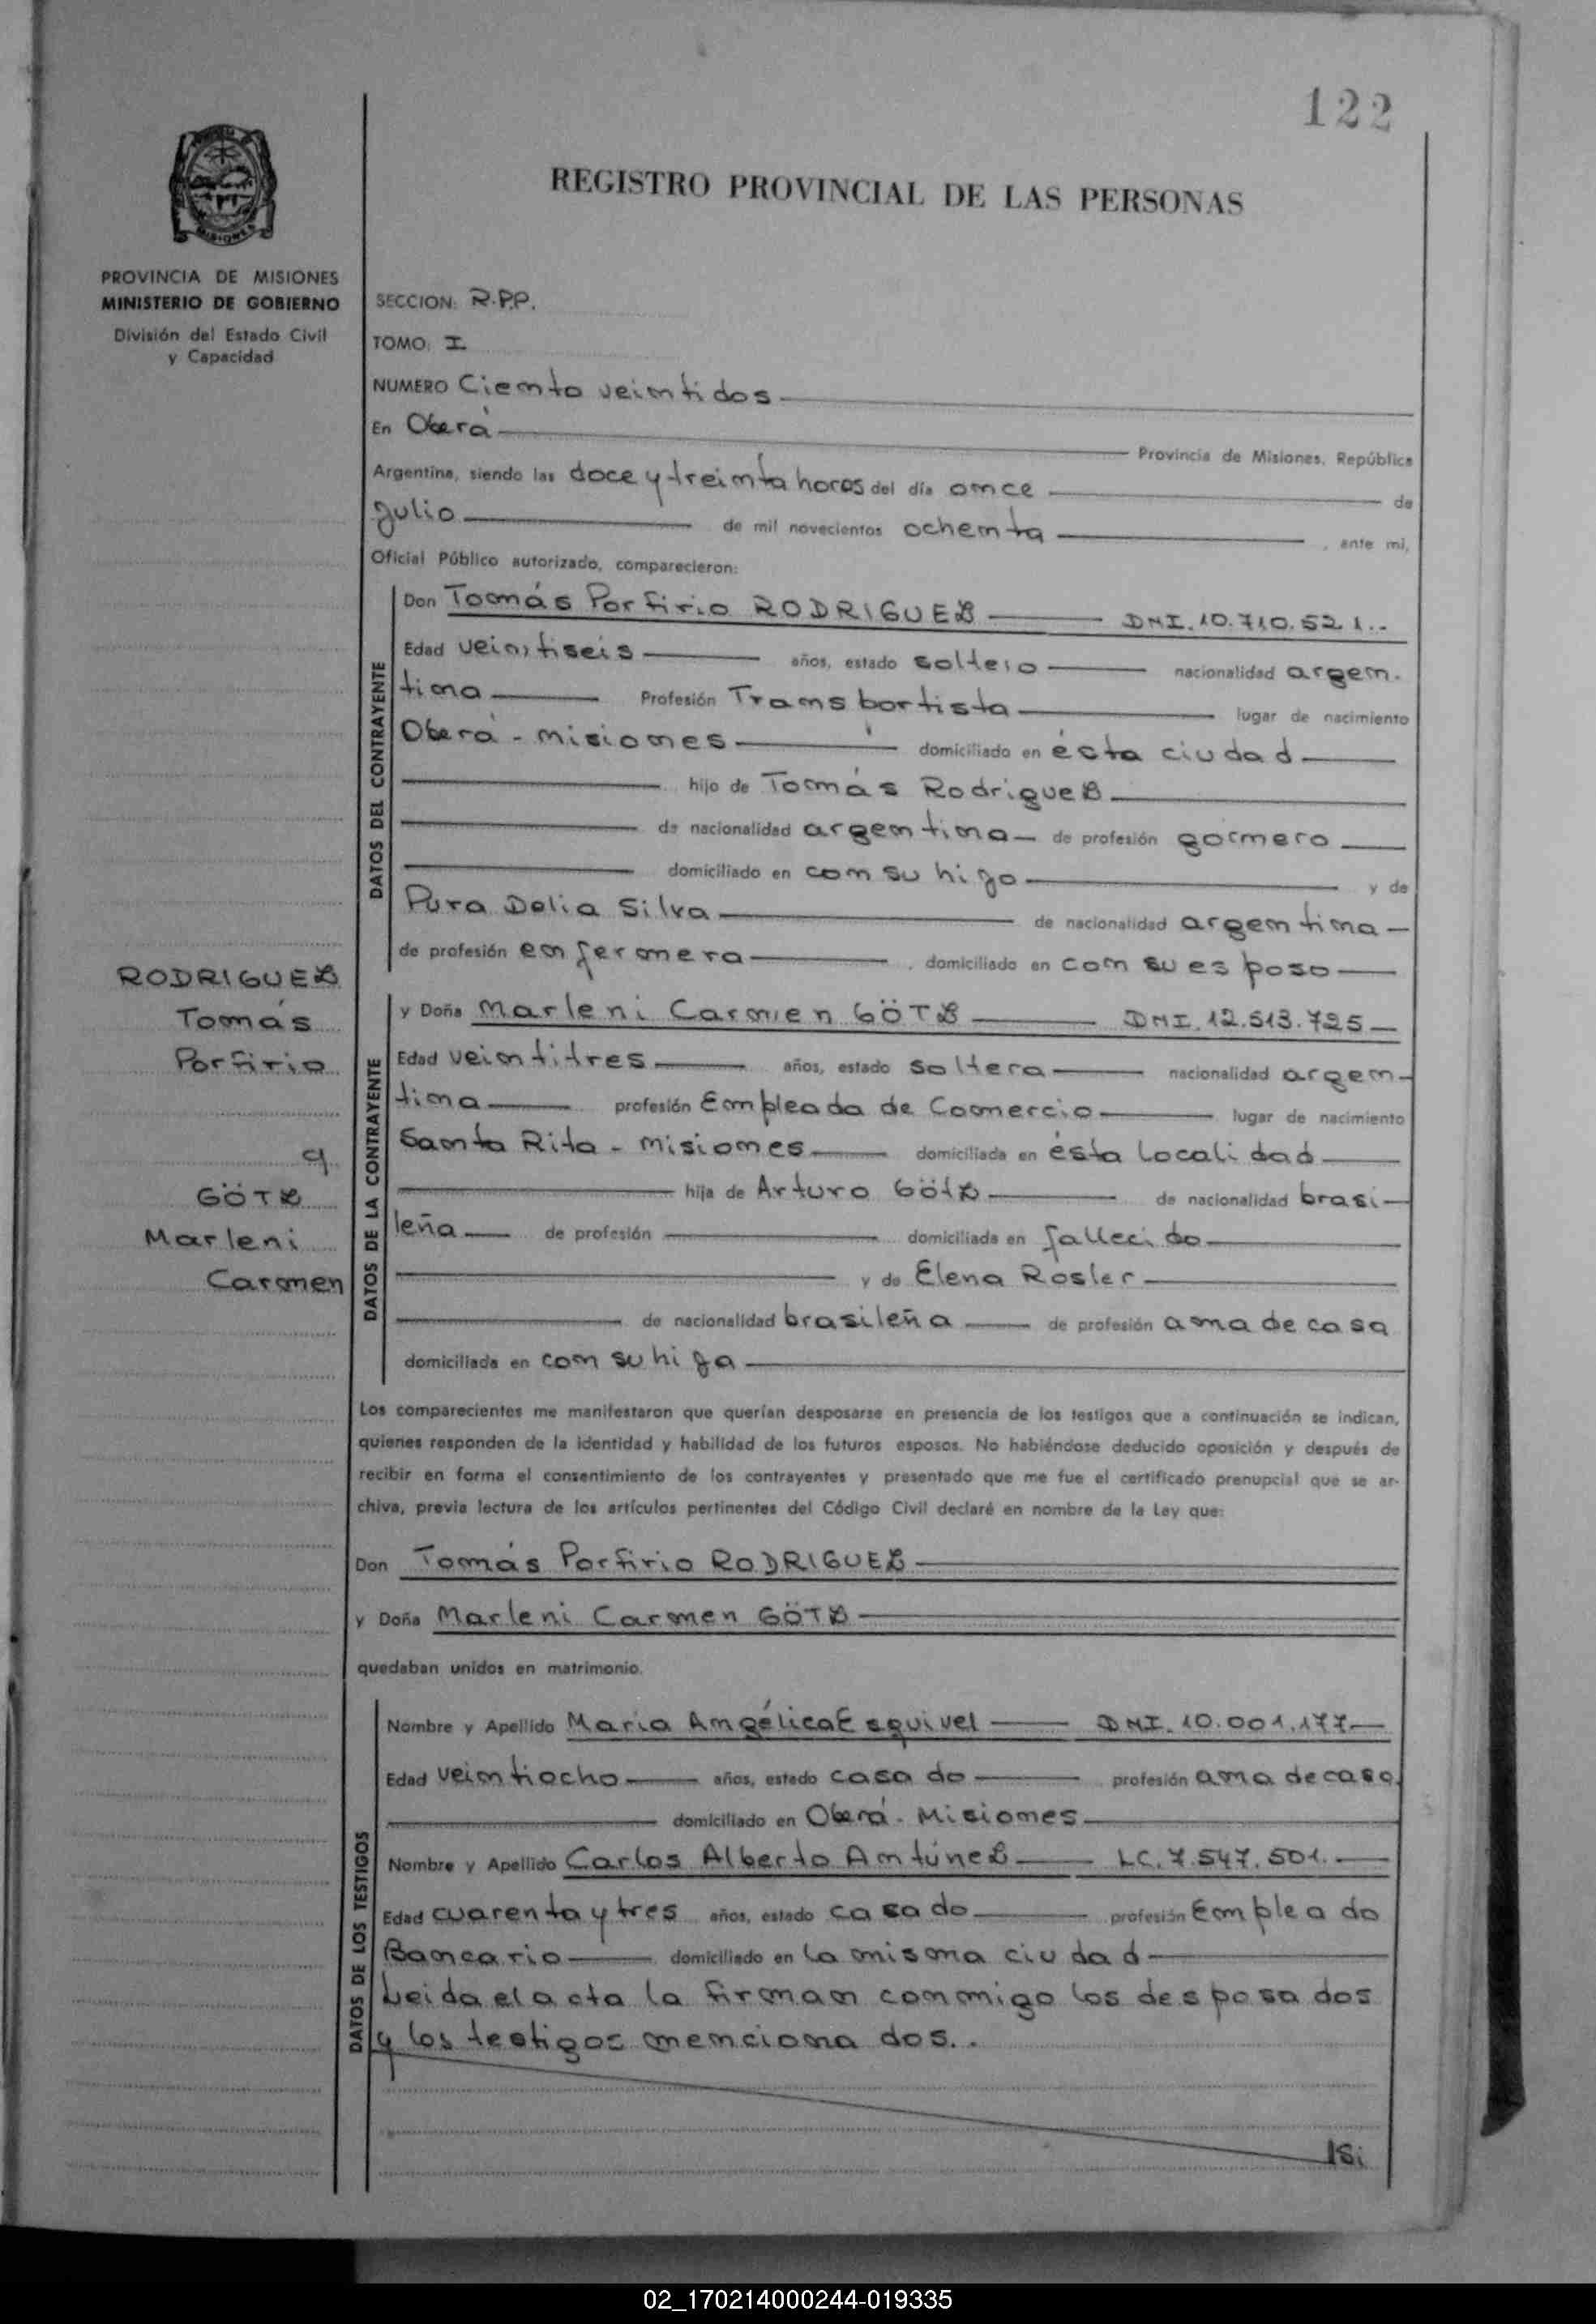 122
REGISTRO PROVINCIAL DE LAS PERSONAS
MISIONES
PROVINCIA DE MISIONES
MINISTERIO DE GOBIERNO
División del Estado Civil
y Capacidad
SECCION: R.P.P.
TOMO: I
NUMERO Ciento veintidos
En Oberá Provincia de Misiones, República
Argentina, siendo las doce y treinta horas del día once de
Julio de mil novecientos ochenta, ante mi,
Oficial Público autorizado, comparecieron:
DATOS DEL CONTRAYENTE
Don Tomás Porfirio RODRIGUEZ DNI. 10.710.521.-
Edad veintiseis años, estado soltero nacionalidad argen-
tina Profesión Transportista lugar de nacimiento
Oberá - misiones domiciliado en ésta ciudad
hijo de Tomás Rodriguez
de nacionalidad argentina de profesión gomero
domiciliado en con su hijo y de
Pura Delia Silva de nacionalidad argentina
de profesión enfermera, domiciliado en con su esposo
RODRIGUEZ
Tomás
Porfirio
y
GÖTZ
Marleni
Carmen
DATOS DE LA CONTRAYENTE
y Doña Marleni Carmen GÖTZ DNI. 12.513.725
Edad veintitres años, estado soltera nacionalidad argen-
tina profesión Empleada de Comercio lugar de nacimiento
Santa Rita - misiones domiciliada en ésta localidad
hija de Arturo Götz de nacionalidad brasi-
leña de profesión domiciliada en fallecido
y de Elena Rosler
de nacionalidad brasileña de profesión ama de casa
domiciliada en con su hija
Los comparecientes me manifestaron que querían desposarse en presencia de los testigos que a continuación se indican,
quienes responden de la identidad y habilidad de los futuros esposos. No habiéndose deducido oposición y después de
recibir en forma el consentimiento de los contrayentes y presentado que me fue el certificado prenupcial que se ar-
chiva, previa lectura de los artículos pertinentes del Código Civil declaré en nombre de la Ley que:
Don Tomás Porfirio RODRIGUEZ
y Doña Marleni Carmen GÖTZ
quedaban unidos en matrimonio.
DATOS DE LOS TESTIGOS
Nombre y Apellido Maria Angélica Esquivel DNI. 10.001.177
Edad veintiocho años, estado casado profesión ama de casa
domiciliado en Oberá - Misiones
Nombre y Apellido Carlos Alberto Antúnez LC. 7.547.501.
Edad cuarenta y tres años, estado casado profesión Empleado
Bancario domiciliado en la misma ciudad
Leida el acta la firman conmigo los desposados
y los testigos mencionados..
02_170214000244-019335